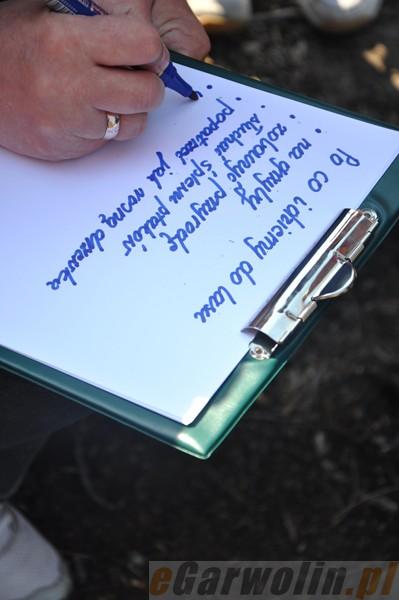 Po co idziemy do lasu
• na grzyby
• zobaczyć przyrodę
• słuchać śpiewu ptaków
• popatrzeć jak rosną drzewka
•
eGarwolin.pl